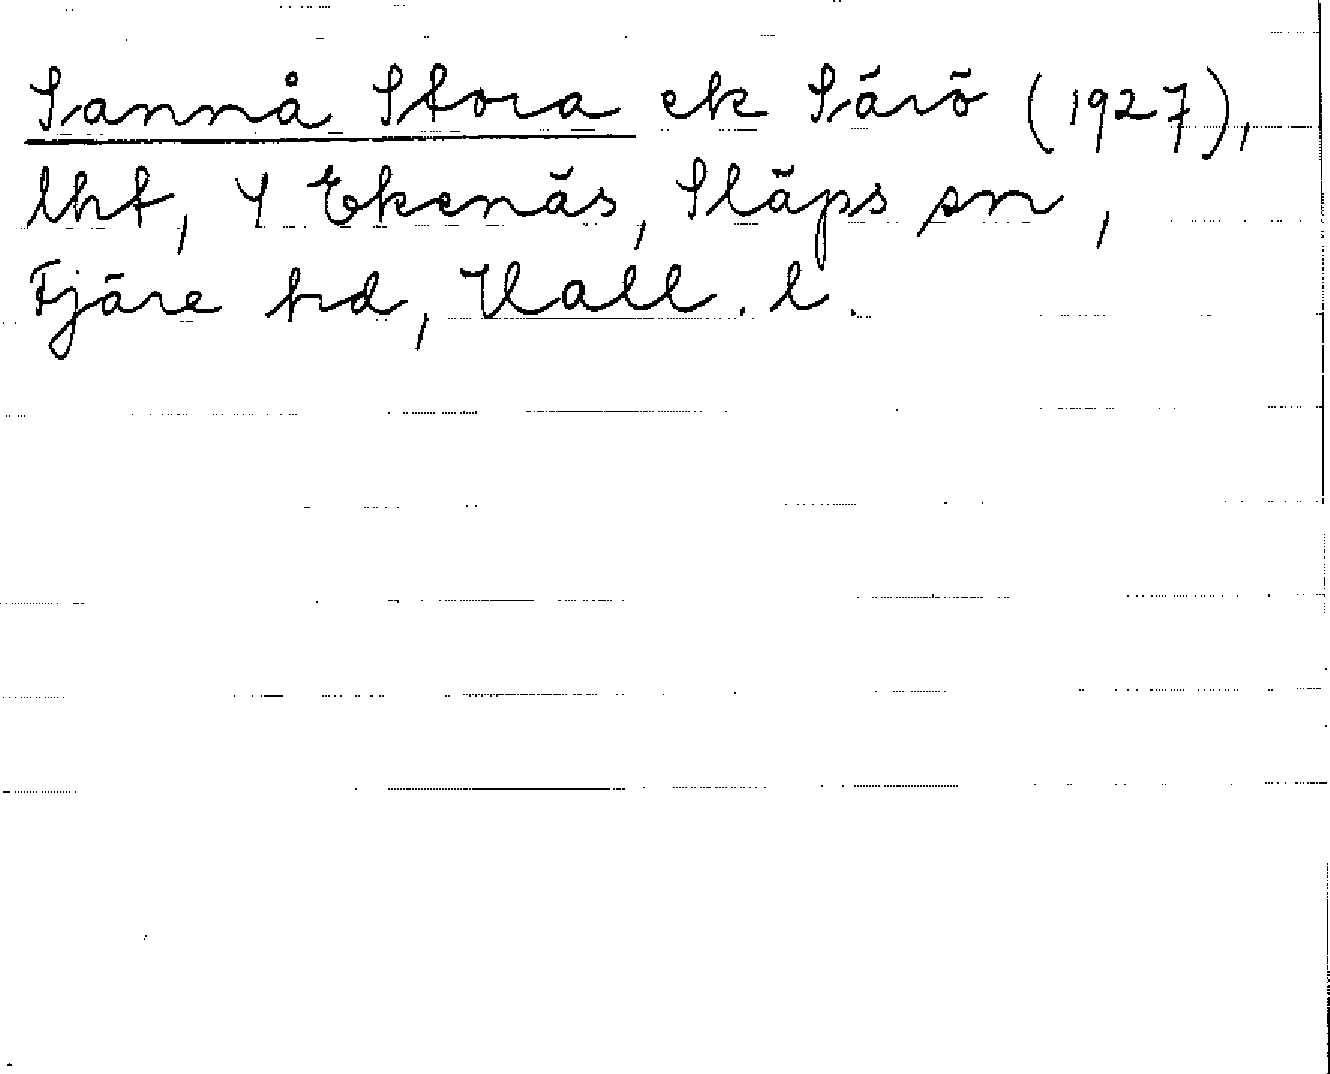 Sannå Stora ek Särö (1927),
lht, Y Ekenäs, Släps sn,
Fjäre hd, Hall. l.